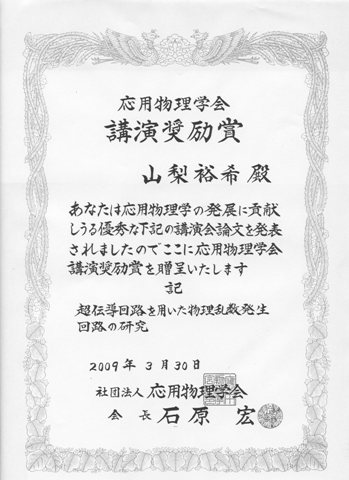 応用物理学会
講演奨励賞
山梨裕希 殿
あなたは応用物理学の発展に貢献
しうる優秀な下記の講演会論文を発表
されましたのでここに応用物理学会
講演奨励賞を贈呈いたします
記
超伝導回路を用いた物理乱数発生
回路の研究
2009年 3月30日
社団法人 応用物理学会
会長 石原 宏